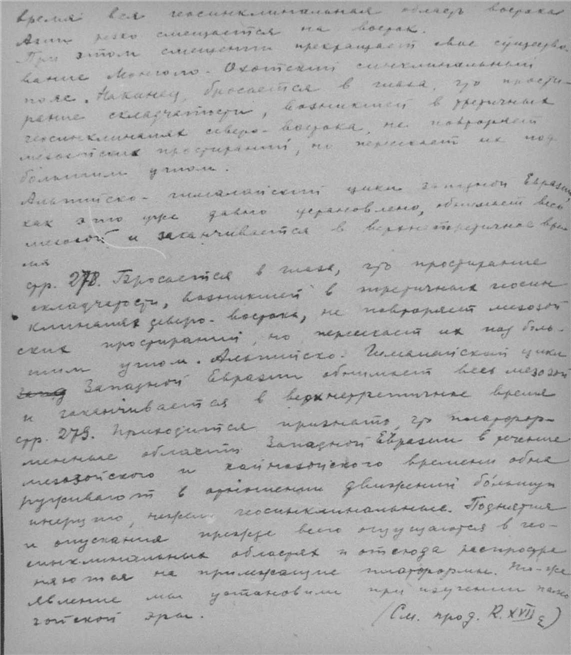 время вся геосинклинальная область востока
Азии резко смещается на восток.
При этом смещении прекращает свое существо-
вание Монголо-Охотский синклинальный
пояс. Наконец, бросается в глаза, что прости-
рание складчатости, возникшей в третичных
геосинклиналях северо-востока, не повторяет
мезозойских простираний, но пересекает их под
большим углом.
Альпийско-гималайский цикл западной Евразии,
как это уже давно установлено, обнимает весь
мезозой и заканчивается в верхнетретичное вре-
мя
стр. 278. Бросается в глаза, что простирание
складчатости, возникшей в третичных геосин
клиналях северо-востока, не повторяет мезозой
ских простираний, но пересекает их под боль-
шим углом. Альпийско-Гималайский цикл
Западной Евразии обнимает весь мезозой
и заканчивается в верхнетретичное время
стр. 279. Приходится признать, что платфор-
менные области Западной Евразии в течение
мезозойского и кайнозойского времени обна
руживают в отношении движений большую
инерцию, нежели геосинклинальные. Поднятия
и опускания прежде всего ощущаются в гео-
синклинальных областях и отсюда распростра
няются на прилежащие платформы. То-же
явление мы установили при изучении палео
зойской эры.
(См. прод. R. XVII